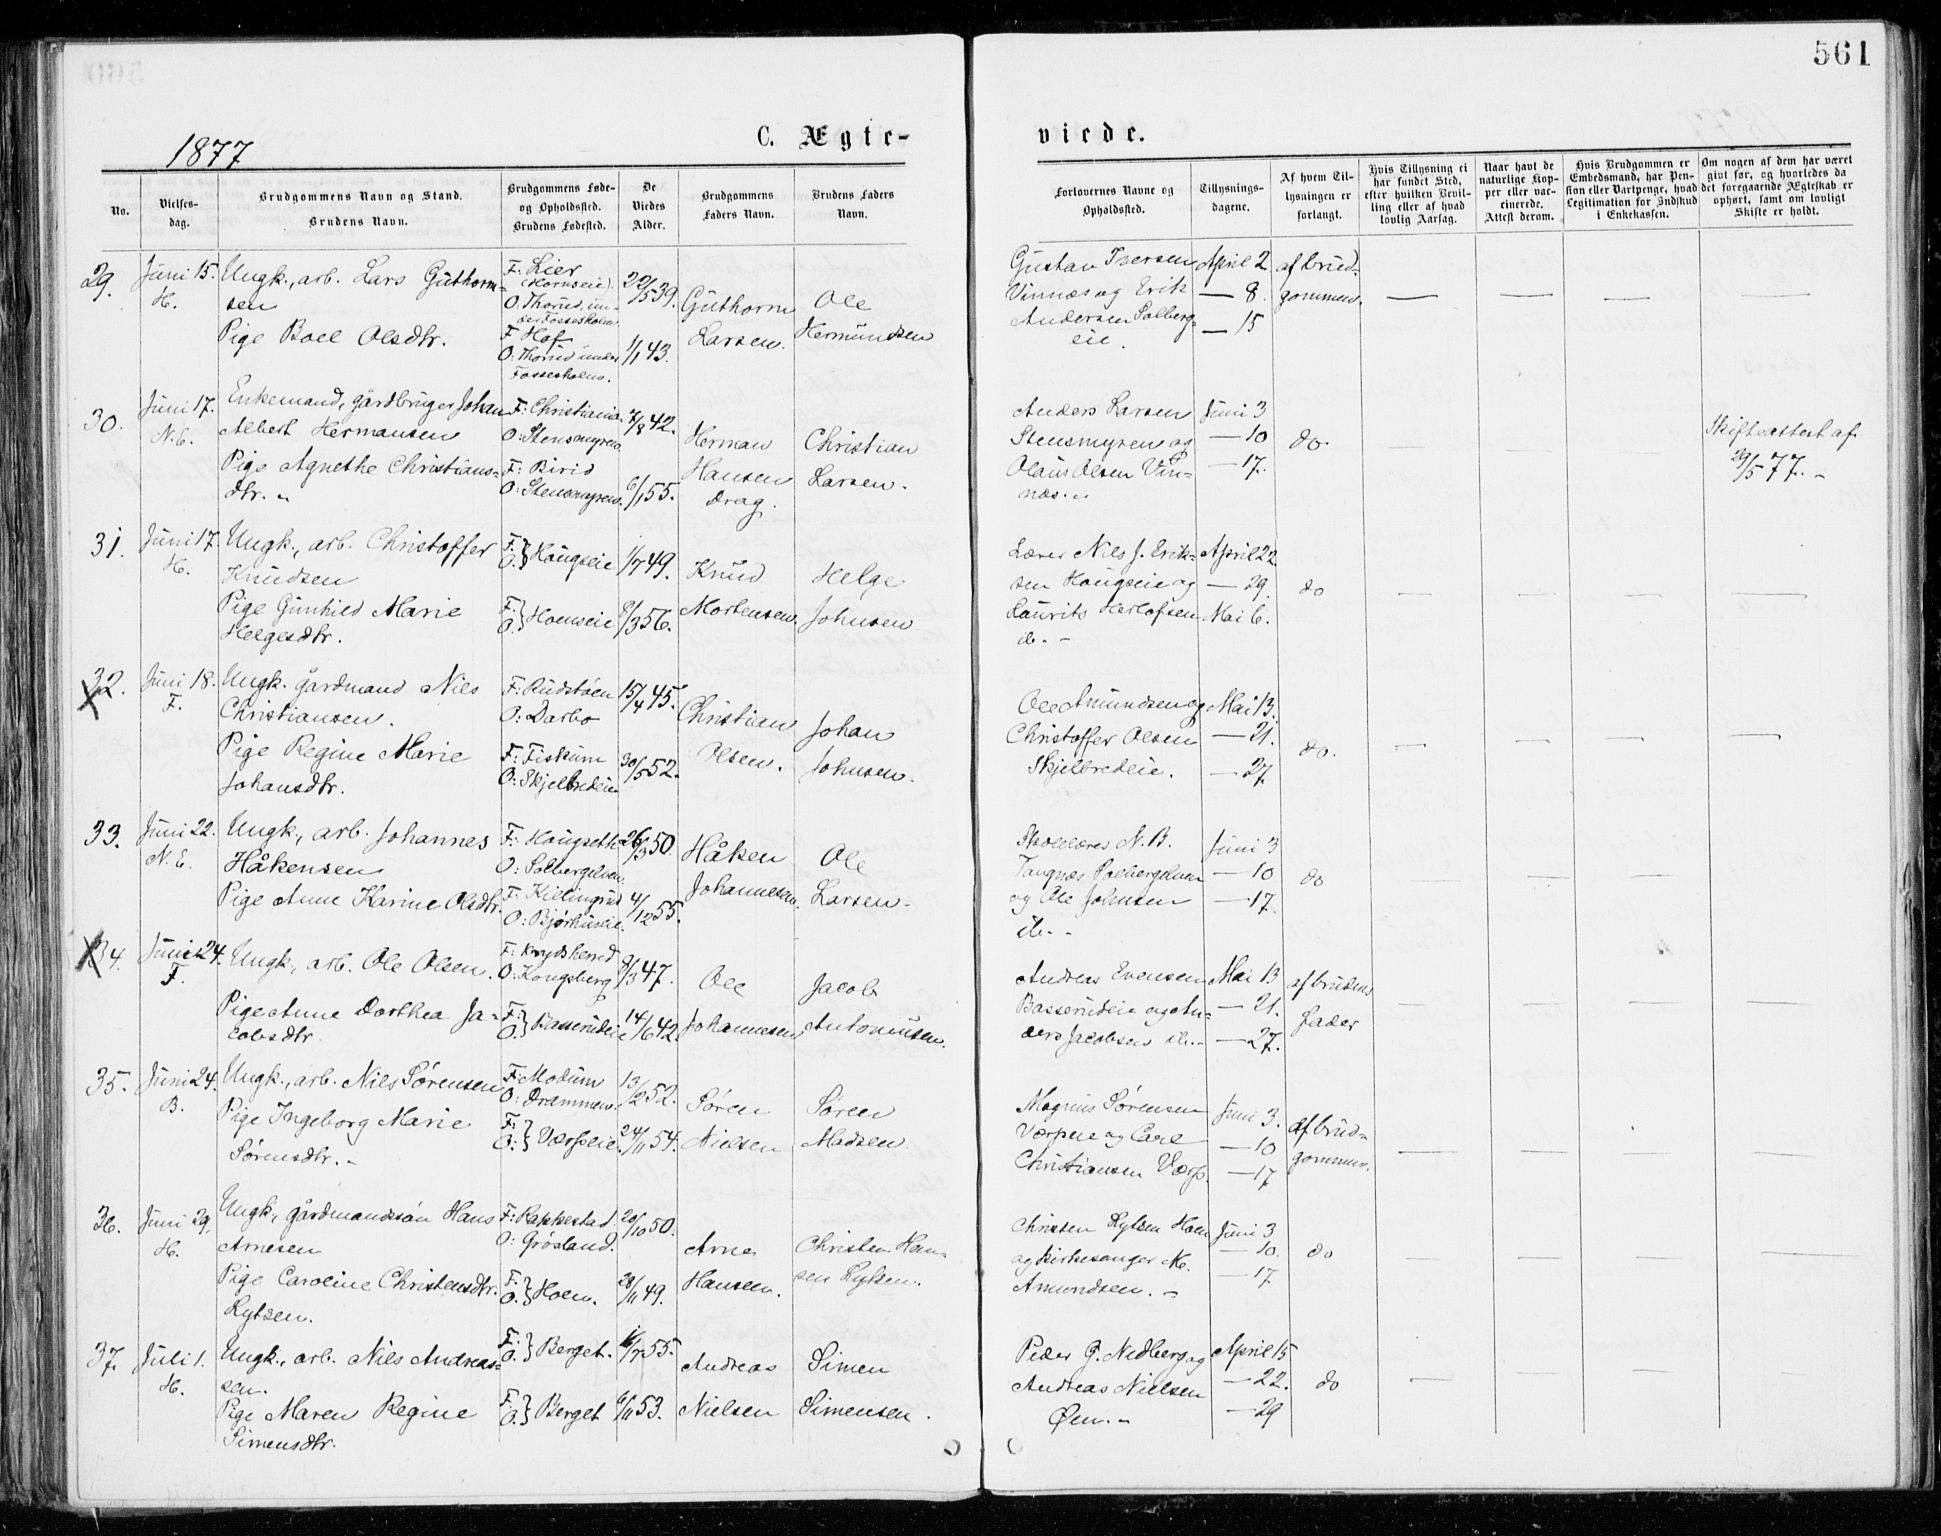 561
1877
C. Ægte-
viede.
No.
Vielses-
dag.
Brudgommens Navn og Stand.
Brudens Navn.
Brudgommens Føde-
og Opholdssted.
Brudens Fødested.
De
Viedes
Alder.
Brudgommens
Faders Navn.
Brudens Faders
Navn.
Forlovernes Navne og
Opholdssted.
Tillysnings-
dagene.
Af hvem Til-
lysningen er
forlangt.
Hvis Tillysning ei
har fundet Sted,
efter hvilken Bevil-
ling eller af hvad
lovlig Aarsag.
Naar havt de
naturlige Kop-
per eller vac-
cinerede.
Attest derom.
Hvis Brudgommen er
Embedsmand, har Pen-
sion eller Vartpenge, hvad
Legitimation for Indskud
i Enkekassen.
Om nogen af dem har været
givt før, og hvorledes da
det foregaaende Ægteskab er
ophørt, samt om lovligt
Skifte er holdt.
29.
Juni 15.
H.
Ungk., arb. Lars Guthorm-
sen
Pige Boel Olsdtr.
F: Lier
(Hornseie).
O. Thorud, un-
der Fossesholm.
F. Hof
O: Thorud under
Fossesholm.
22/5 39.
1/1 43.
Guthorm
Larsen.
Ole
Hermundsen
Gustav Iversen
Vinnæs og Erik
Andersen Solberg-
eie.
April 2
— 8.
— 15
af brud-
gommen.
30.
Juni 17.
N. E.
Enkemand, gårdbruger Johan
Albert Hermansen
Pige Agnethe Christians-
dtr. –
F: Christiania.
O: Stensmyren
F: Birid
O: Stensmyren.
/8 42.
6/1 55.
Herman
Hansen
Drag.
Christian
Larsen.
Anders Larsen
Stensmyren og
Olaus Olsen Vin-
næs. –
Juni 3
— 10
— 17.
do.
Skifteattest af
29/5 77. –
31.
Juni 17.
H.
Ungk., arb. Christoffer
Knudsen
Pige Gunhild Marie
Helgesdtr.
F.
O. } Hougseie
F.
O. } Hoenseie
1/7 49.
8/3 56.
Knud
Mortensen.
Helge
Johnsen
Lærer Nils J. Erik-
sen Hougseie og
Laurits Herlofsen
ib. –
April 22
— 29.
Mai 6.
do
32.
Juni 18.
F.
Ungk. gårdmand Nils
Christiansen.
Pige Regine Marie
Johansdtr.
F: Rudstøen
O: Darbo
F: Fiskum
O: Skjelbredeie
15/4 45.
30/5 52.
Christian
Olsen.
Johan
Johnsen.
Ole Amundsen og
Christoffer Olsen
Skjelbredeie.
Mai 13.
— 21.
— 27.
do.
33.
Juni 22.
N. E.
Ungk., arb. Johannes
Håkensen
Pige Anne Karine Olsdtr.
F: Hougseth
O: Solbergelven.
F: Killingrud
O: Bjørhuseie.
26/3 50.
4/12 55.
Håken
Johannesen.
Ole
Larsen.
Skolelærer N. B.
Tangnæs Solbergelven
og Ole Johnsen
ib. –
Juni 3
— 10
— 17.
do
34.
Juni 24.
F.
Ungk., arb. Ole Olsen.
Pige Anne Dorthea Ja-
cobsdtr.
F: Krydsherred
O: Kongsberg
F:
O. } Basserudeie
8/3 47.
14/6 42.
Ole
Johannesen
Jacob
Antonsen.
Andreas Evensen
Basserudeie og An-
ders Jacobsen ib. –
Mai 13
— 21.
— 27.
af brudens
fader
35.
Juni 24.
B.
Ungk., arb. Nils Sørensen
Pige Ingeborg Marie
Sørensdtr. –
F: Modum
O: Drammen.
F:
O: } Værpseie.
13/2 52.
24/11 54.
Søren
Nielsen
Søren
Madsen.
Magnus Sørensen
Værpseie og Carl
Christiansen Værp.
Juni 3.
— 10
— 17
af brud-
gommen.
36.
Juni 29.
H.
Ungk., gårdmandssøn Hans
Arnesen
Pige Caroline Christensdtr.
Lytsen.
F: Rapkestad.
O: Grøsland.
F.
O. } Hoen.
20/10 50.
28/11 49.
Arne
Hansen.
Christen Han-
sen Lytsen.
Christen Lytsen Hoen
og kirkesanger M.
Amundsen. –
Juni 3
— 10.
— 17
do
37.
Juli 1.
H.
Ungk., arb. Nils Andreas-
sen.
Pige Maren Regine
Simensdtr.
F.
O. } Berget.
F
O. } Berget
/7 55.
6/11 53.
Andreas
Nielsen
Simen
Simensen.
Peder G. Nedberg og
Andreas Nielsen
Øen. –
April 15
— 22.
— 29
do